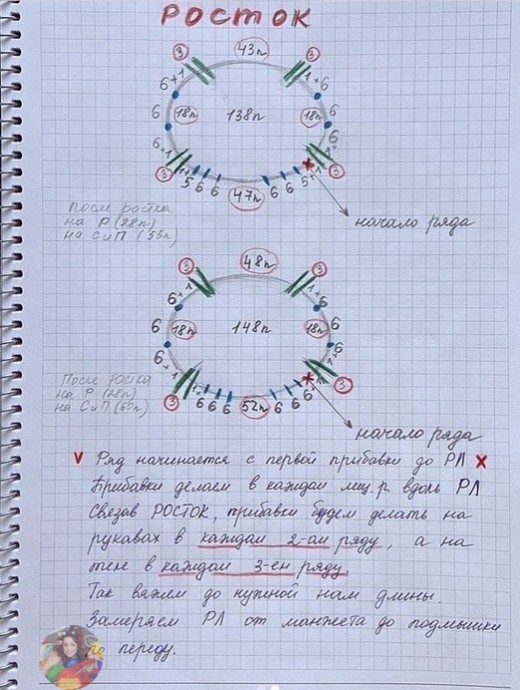 РОСТОК
3 43п 3
6+1 1+6
6 18п 138п 18п 6
6 6
6+1 1+
3 3
1+5 6 6 47п 6 6 5+1
После ростка
на Р (28п)
на СиП (55п)
начало ряда
3 48п 3
6+1 1+6
6 18п 148п 18п 6
6+1 1+6
3 3
1+6 6 6 52п 6 6 6+1
После ростка
на Р (28п)
на СиП (60п)
начало ряда
V Ряд начинается с первой прибавки до РЛ X
Прибавки делаем в каждом лиц.р вдоль РЛ
Связав РОСТОК, прибавки будем делать на
рукавах в каждом 2-ом ряду, а на
теле в каждом 3-ем ряду.
Так вяжем до нужной нам длины.
Замеряем РЛ от манжета до подмышки
по переду.